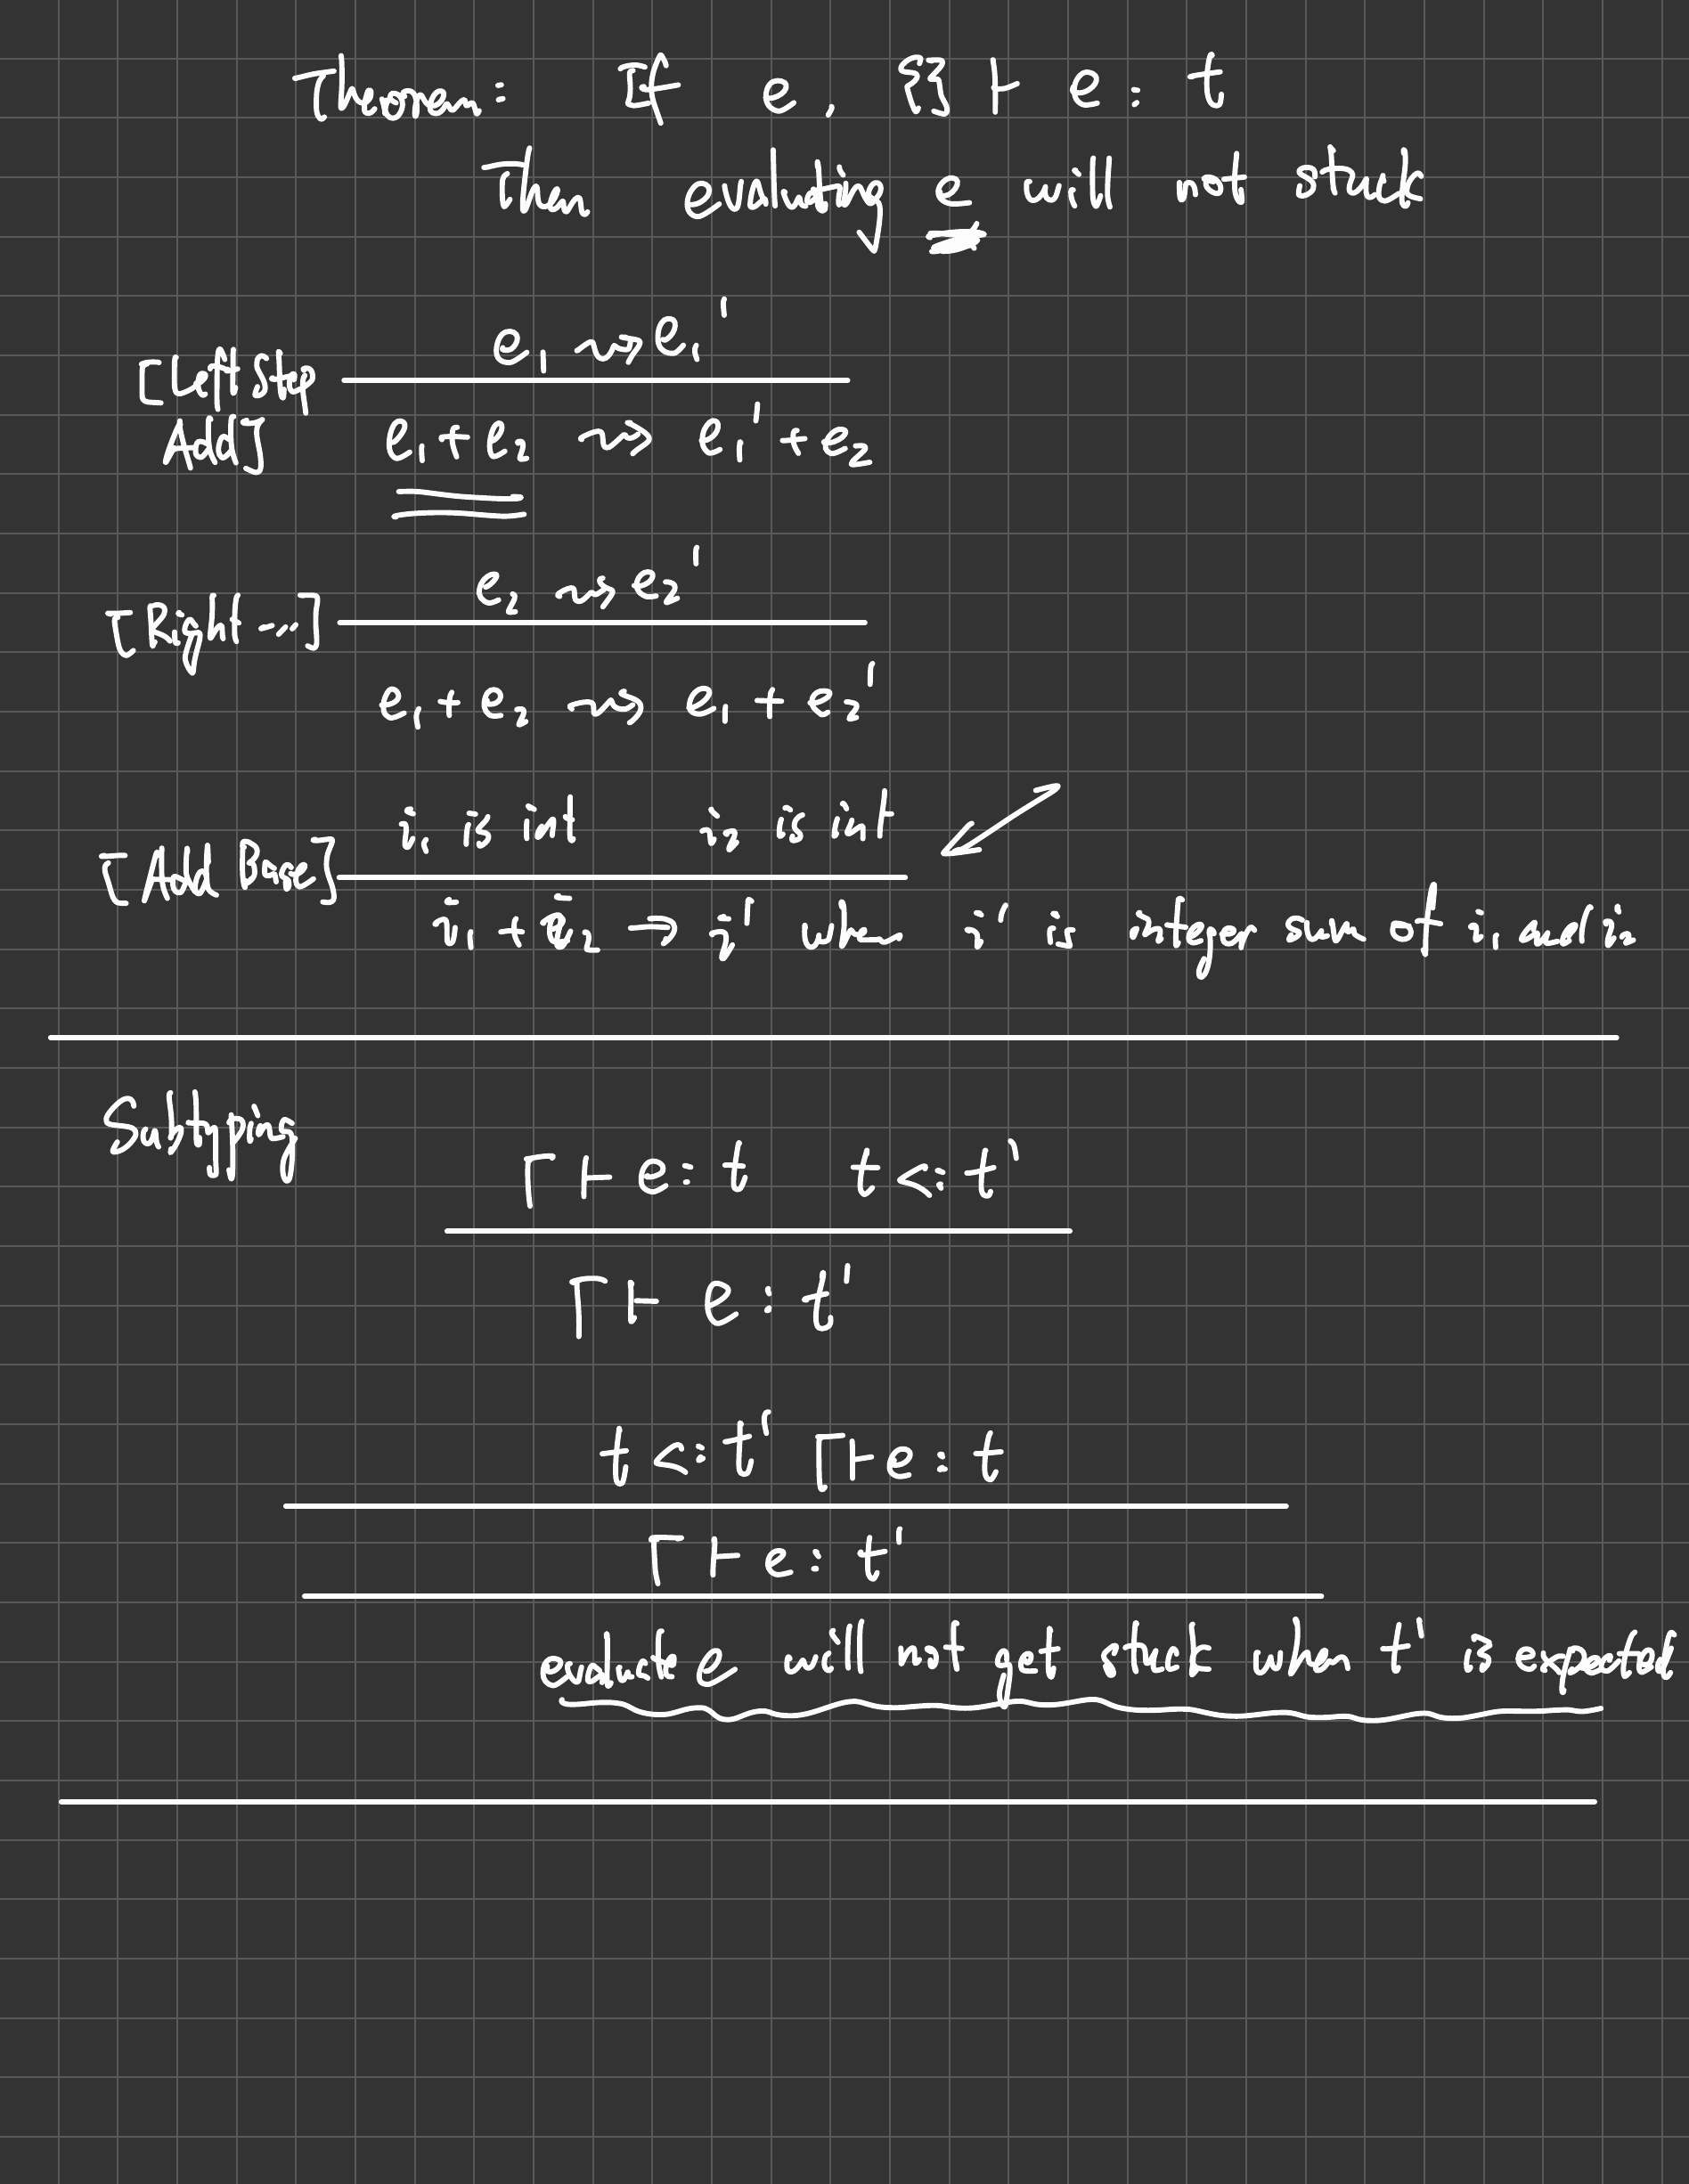 Theorem: If e, {} ⊢ e : t
Then evaluting e will not stuck
e₁ ⇝ e₁'
[Left Step
Add]
e₁ + e₂ ⇝ e₁' + e₂
e₂ ⇝ e₂'
[Right ...]
e₁ + e₂ ⇝ e₁ + e₂'
i₁ is int i₂ is int
[Add Base]
i₁ + i₂ → i' when i' is integer sum of i₁ and i₂
Subtyping
Γ ⊢ e : t t <: t'
Γ ⊢ e : t'
t <: t' Γ ⊢ e : t
Γ ⊢ e : t'
evaluate e will not get stuck when t' is expected